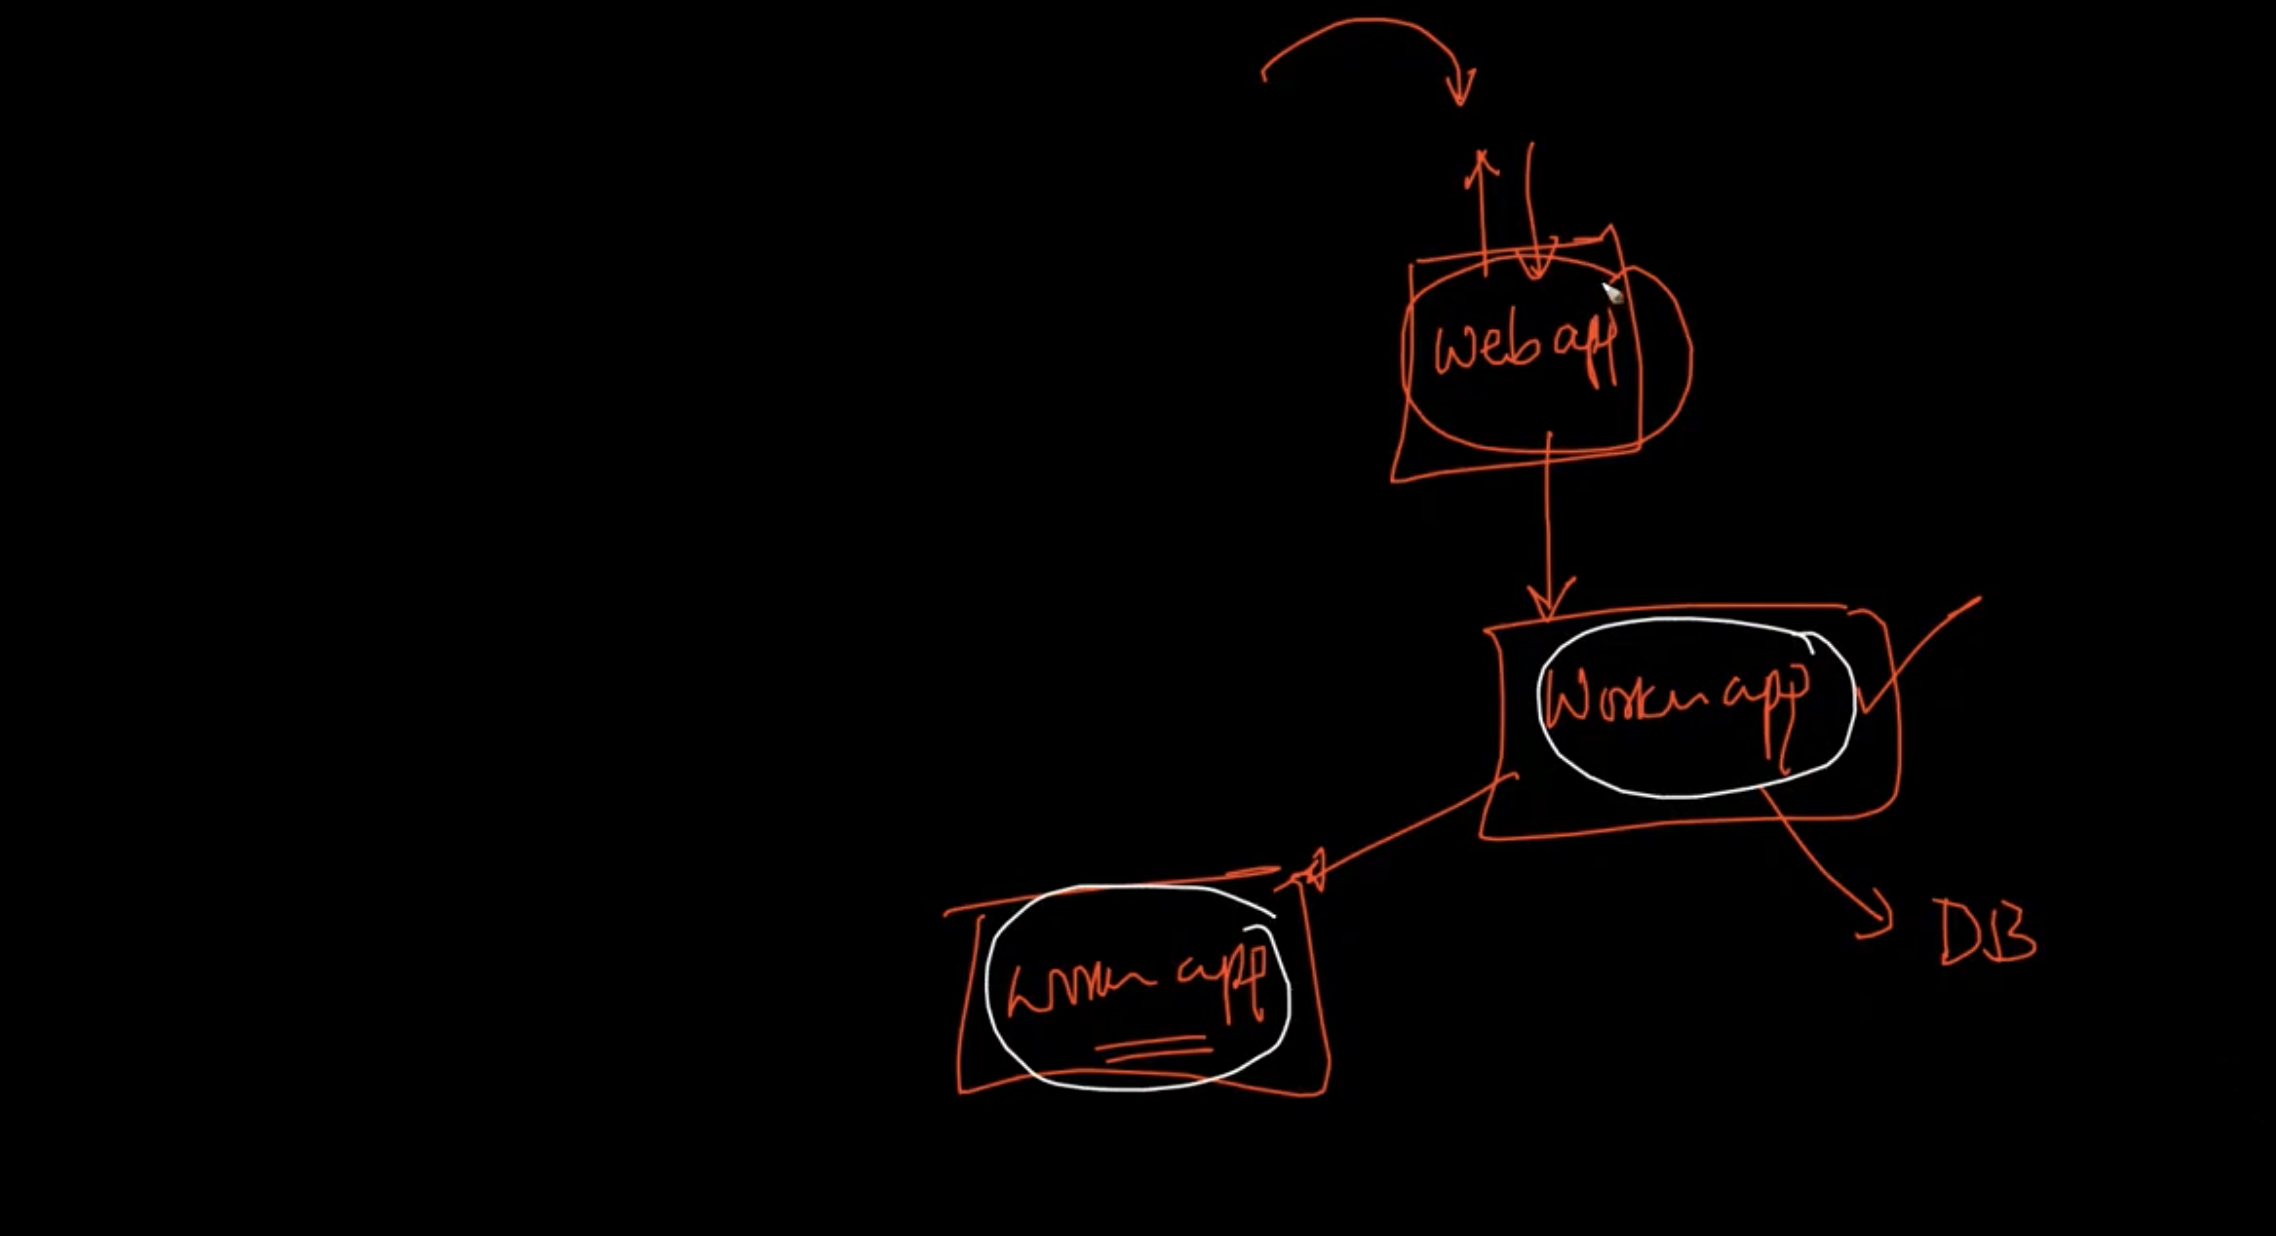 Web app
Worker app
DB
Worker app